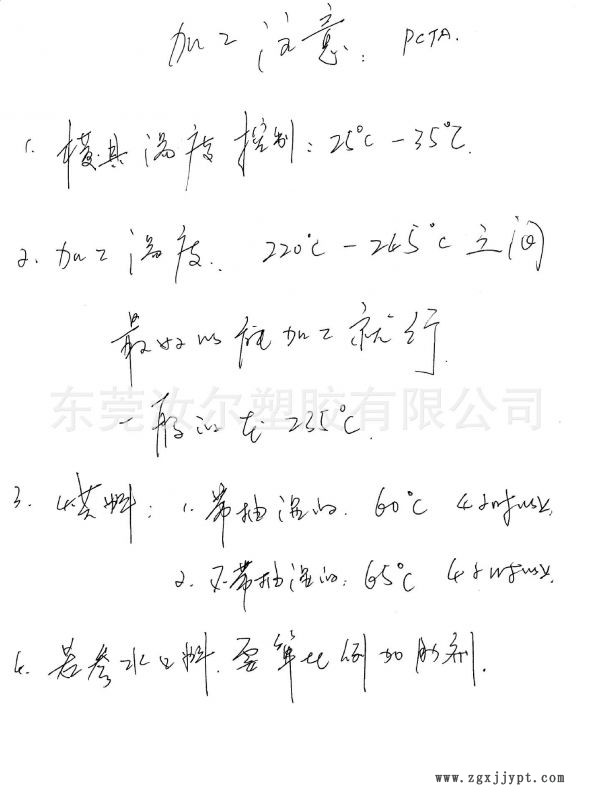 加工注意: PCTA.
1. 模具温度控制: 25℃-35℃.
2. 加工温度. 220℃-265℃之间
最好以能加工就行
东莞汝尔塑胶有限公司
一般的在235℃.
3. 烘料: 1. 带抽湿的. 60℃ 4小时以上.
2. 不带抽湿的: 65℃ 4小时以上.
4. 若参水口料. 要算比例加助剂.
www.zgxjjypt.com